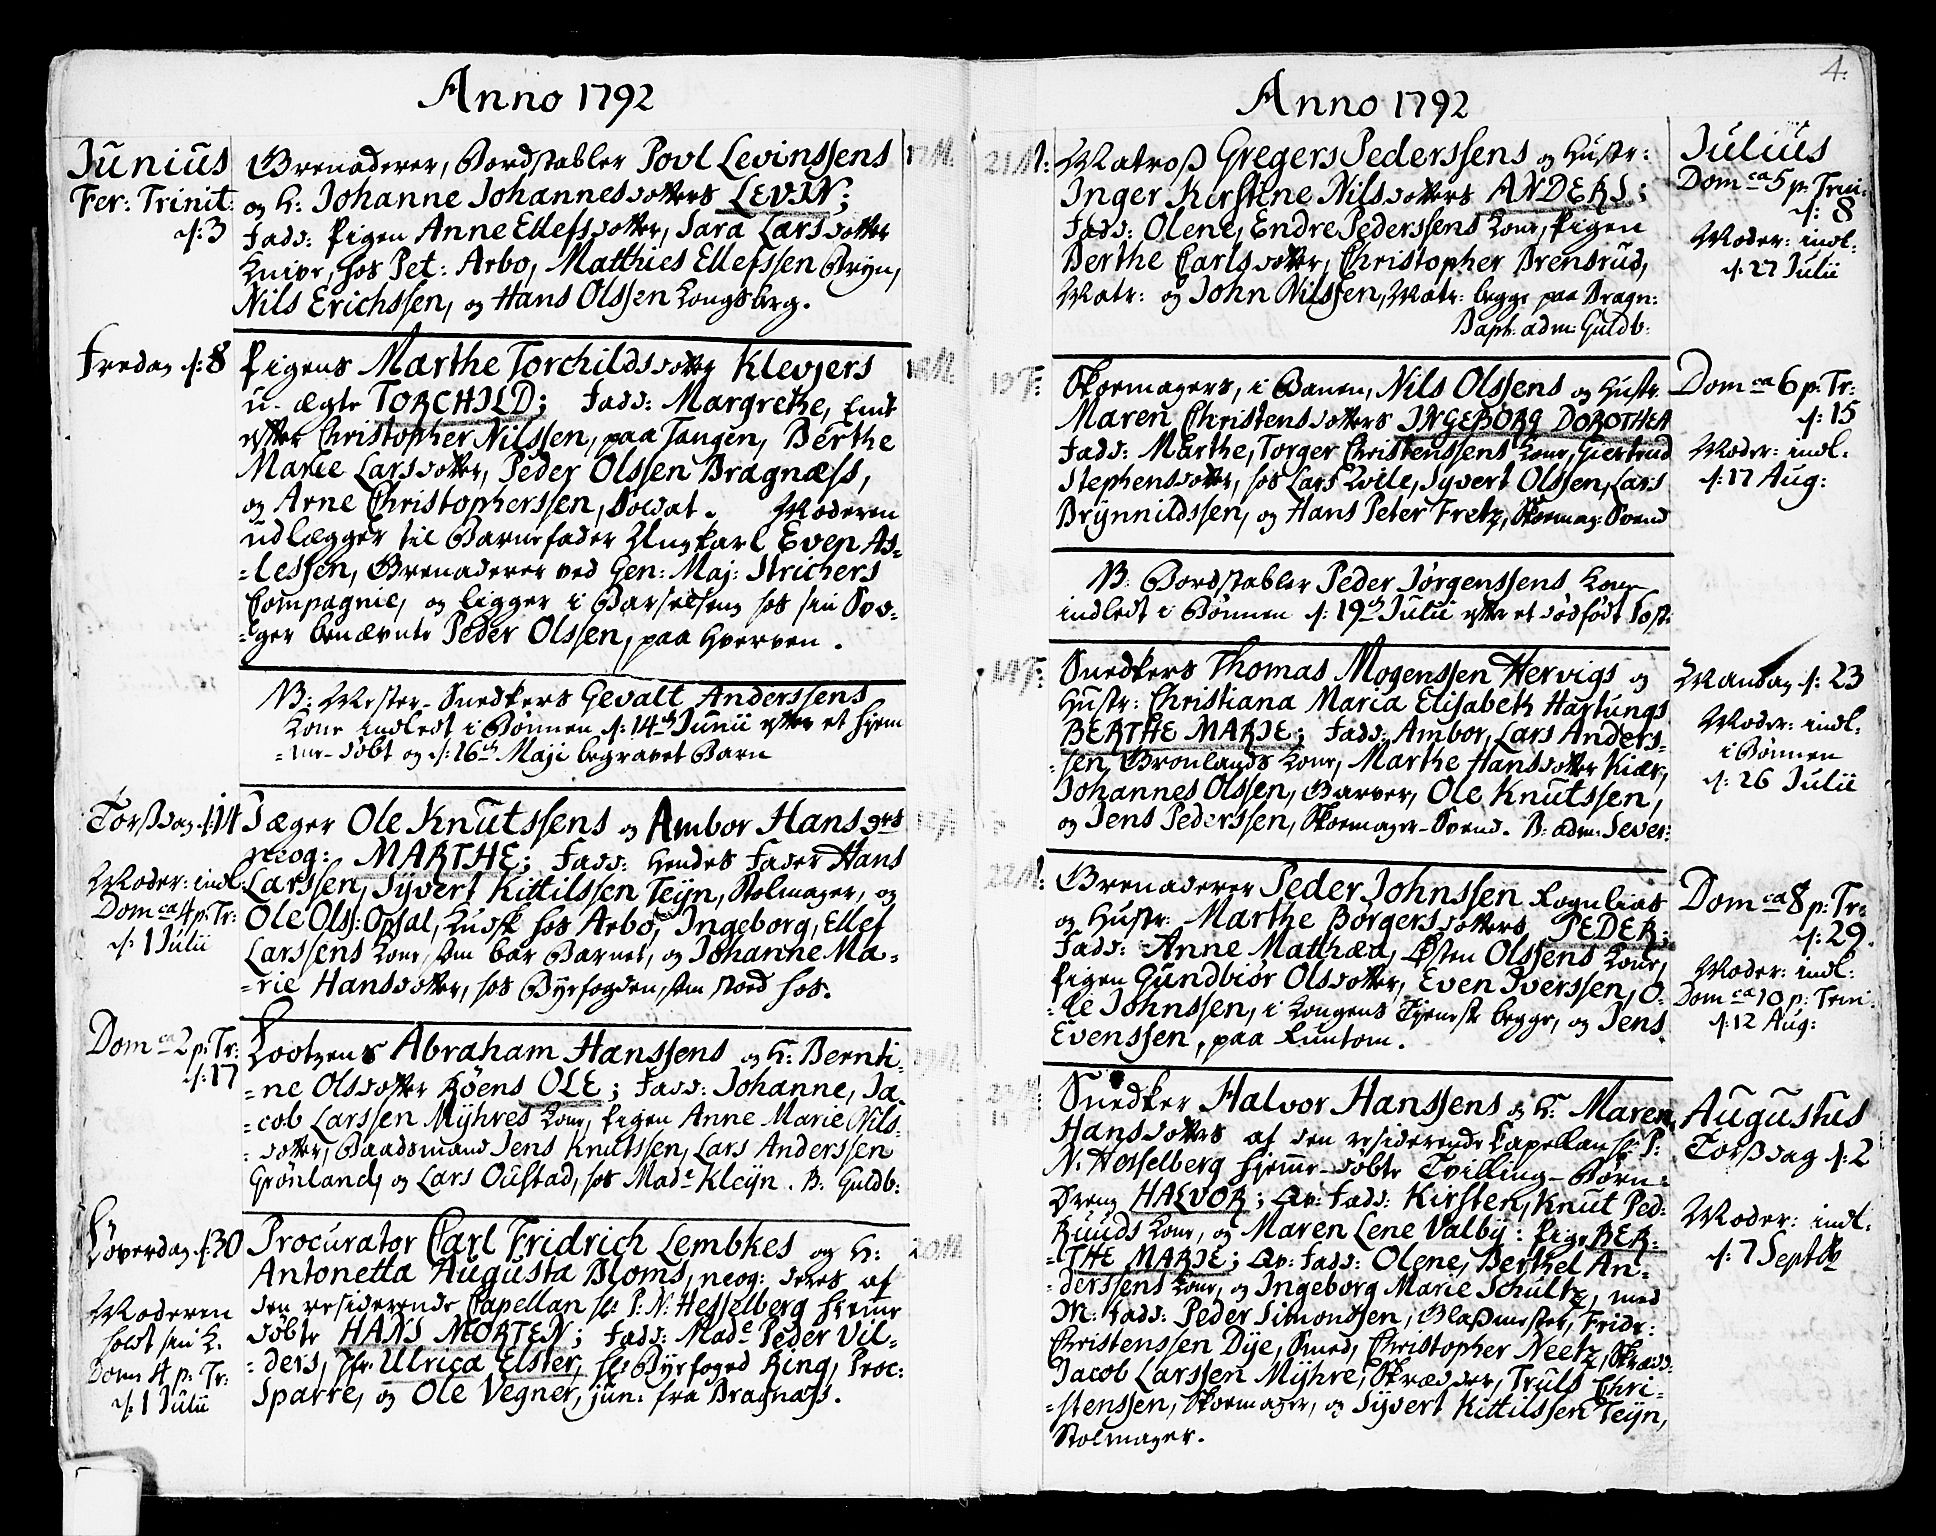 Anno 1792
Junius
Fer: Trinit:
d: 3
Grenaderer, Bordstabler Povl Levinssens
og H: Johanne Johannesdotters LEVIN;
Fadd: Pigen Anne Ellefsdotter, Sara Larsdotter
Knive, hos Pet: Arbo, Matthies Ellefssen Bryn,
Nils Erichssen, og Hans Olssen Kongsberg.
17 M.
Fredag d: 8
Pigens Marthe Torchildsdotter Klevjers
u-ægte TORCHILD; Fadd: Margrethe, Enke
efter Christopher Nilssen, paa Tangen, Berthe
Marie Larsdotter, Peder Olssen Bragnæss,
og Arne Christopherssen, Soldat. Moderen
udlægger til Barnefader Ungkarl Even As-
-lessen, Grenaderer ved Gen: Maj: Strickers
Compagnie, og ligger i Barselseng hos sin Svo-
-ger benævnte Peder Olssen, paa Hverven.
18 M.
NB: Mester-Snedkers Gevalt Anderssens
Kone indledt i Bønnen d: 14de Junii efter et hjem-
-me-døbt og d: 16de Maji begravet Barn
Torsdag d: 14
Moder: indl:
Dom ca 4 p: Tr:
d: 1 Julii
Jæger Ole Knutssens og Ambor Hansdrs
neog: MARTHE; Fadd: Hendes Fader Hans
Larssen, Syvert Kittilssen Teyn, Stolmager, og
Ole Ols: Opsal, Kudsk hos Arbo, Ingeborg, Ellef
Larssens Kone, som bar Barnet, og Johanne Ma-
-rie Hansdotter, hos Byefogden, som stoed hos.
Dom ca 2 p: Tr:
d: 17
Lootzens Abraham Hanssens og H: Bernti-
-ne Olsdotter Høens OLE; Fadd: Johanne, Ja-
-cob Larssen Myhres Kone, Pigen Anne Marie Nils-
-dotter, Baadsmand Jens Knutssen, Lars Anderssen
Grønland, og Lars Oustad, hos Made Kleyn. B: Guldb:
Løverdag d: 30
Moderen
holdt sin K.
Dom 4 p: Tr:
d: 1 Julii
Procurator Carl Fridrich Lembkes og H:
Antonetta Augusta Bloms, neog: deres af
den residerende Capellan hr: P: N: Hesselberg hjemme
døbte HANS MORTEN; Fadd: Made Peder Vil-
-ders, Jfr: Ulrica Elster, hr: Byefoged Ring, Proc:
Sparre, og Ole Vegner, jun: fra Bragnæss.
20 M.
4.
Anno 1792
21 M:
Matros Gregers Pederssens og Hustr:
Inger Kirstine Nilsdotters ANDERS;
Fadd: Olene, Endre Pederssens Kone, Pigen
Berthe Carlsdotter, Christopher Brensrud,
Matr: og John Nilssen, Matr: begge paa Bragn:
Bapt: adm: Guldb:
Julius
Dom ca 5 p: Trini:
d: 8
Moder: indl:
d: 27 Julii
17 F:
Skoemagers, i Banen, Nils Olssens og Hustr:
Maren Christensdotters INGEBORG DOROTHEA
Fadd: Marthe, Torger Christenssens Kone, Giertrud
Stephensdotter, hos Lars Hvile, Syvert Olssen, Lars
Brynnildssen, og Hans Peter Fretz, Skoemag: Svend
Dom ca 6 p: Tr:
d: 15
Moder: indl.
d: 17 Aug:
NB: Bordstabler Peder Jørgenssens Kone
indledt i Bønnen d: 19de Julii efter et dødfødt Fost:
18 F:
Snedkers Thomas Mogenssen Hervigs og
Hustr: Christiana Maria Elisabeth Hartungs
BERTHE MARIE; Fadd: Ambor, Lars Anders-
-sen Grønlands Kone, Marthe Hansdotter Kiær,
Johannes Olssen, Garver, Ole Knutssen,
og Jens Pederssen, Skoemager-Svend. B: adm: Sever:
Mandag d: 23
Moder: indl.
i Bønnen
d: 26 Julii
22 M:
Grenaderer Peder Johnssen Rognlias
og Hustr: Marthe Borgersdotters PEDER;
Fadd: Anne Mathea, Østen Olssens Kone,
Pigen Gundbiør Olsdotter, Even Iverssen, O-
-le Johnssen, i Kongens Tjeneste begge, og Jens
Evenssen, paa Runtom.
Dom ca 8 p: Tr:
d: 29.
Moder: indl:
Dom ca 10 p: Trini:
d: 12 Aug:
Snedker Halvor Hanssens og H: Maren
Hansdotters af den residerende Capellan hr: P:
N: Hesselberg hjemme-døbte Tvilling-Børn:
Dreng HALVOR; Qv: Fadd: Kirsten, Knut Ped:
Ruuds Kone, og Maren Lene Valby: Pige BER-
-THE MARIE; Qv: Fadd: Olene, Berthel An-
-derssens Kone, og Ingeborg Marie Schultz, med
M: Fadd: Peder Simonssen, Glasmester, Fridr:
Christenssen Dye, Smed, Christopher Neetz, Skrædd:
Jacob Larssen Myhre, Skrædder, Truls Chri-
-stenssen, Skoemager, og Syvert Kittilssen Teyn,
Stolmager.
Augustus
Torsdag d: 2
Moder: indl.
d: 7 Septbr